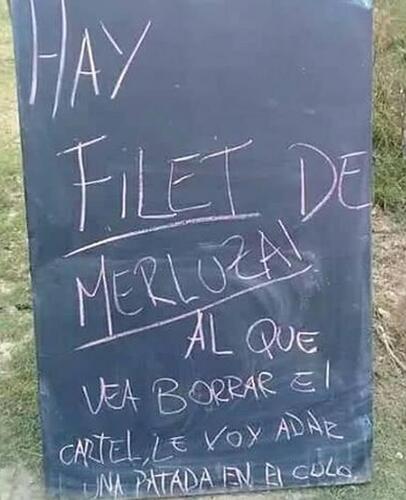 HAY
FILET DE
MERLUZA!
AL QUE
VEA BORRAR El
CARTEL, LE VOY A DAR
UNA PATADA EN El CULO